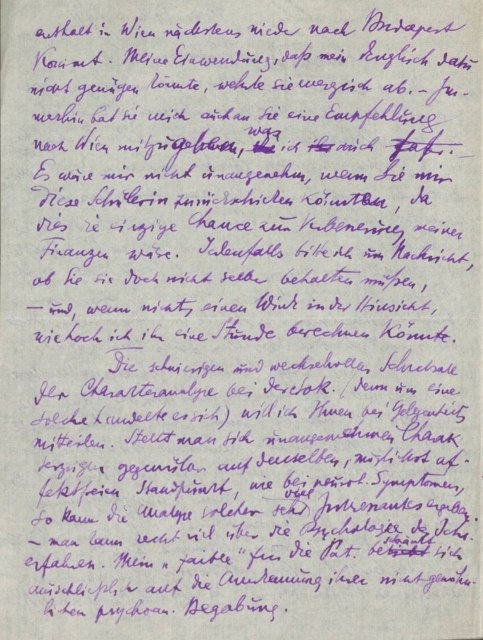 enthalt in Wien nächstens wieder nach Budapest
kommt. Meine Einwendung, daß mein Englisch dazu
nicht genügen könnte, wehrte sie energisch ab. – Im-
merhin bat sie mich auch an Sie eine Empfehlung
nach Wien mitzugeben, was ich auch
Es wäre mir nicht unangenehm, wenn Sie mir
diese Schülerin zurückschicken könnten, da
dies die einzige Chance zur Verbesserung meiner
Finanzen wäre. Jedenfalls bitte ich um Nachricht,
ob Sie sie doch nicht selber behalten müßen,
– und, wenn nicht, einen Wink in der Hinsicht,
wie hoch ich ihr eine Stunde berechnen könnte.
Die schwierigen und wechselvollen Schicksale
der Charakteranalyse bei der (denn um eine
solche handelte es sich) will ich Ihnen bei Gelegenheit
mitteilen. Stellt man sich unangenehmen Charak
terzügen gegenüber auf denselben, möglichst af-
fektfreien Standpunkt, wie bei neurot. Symptomen,
so kann die Analyse solcher sehr viel Interessantes ergeben
– man kann recht viel über die Psychologie des Ichs
erfahren. Mein „faible" für die Pat. beschränkt sich
ausschließlich auf die Anerkennung ihrer nicht gewöhn-
lichen psychoan. Begabung.